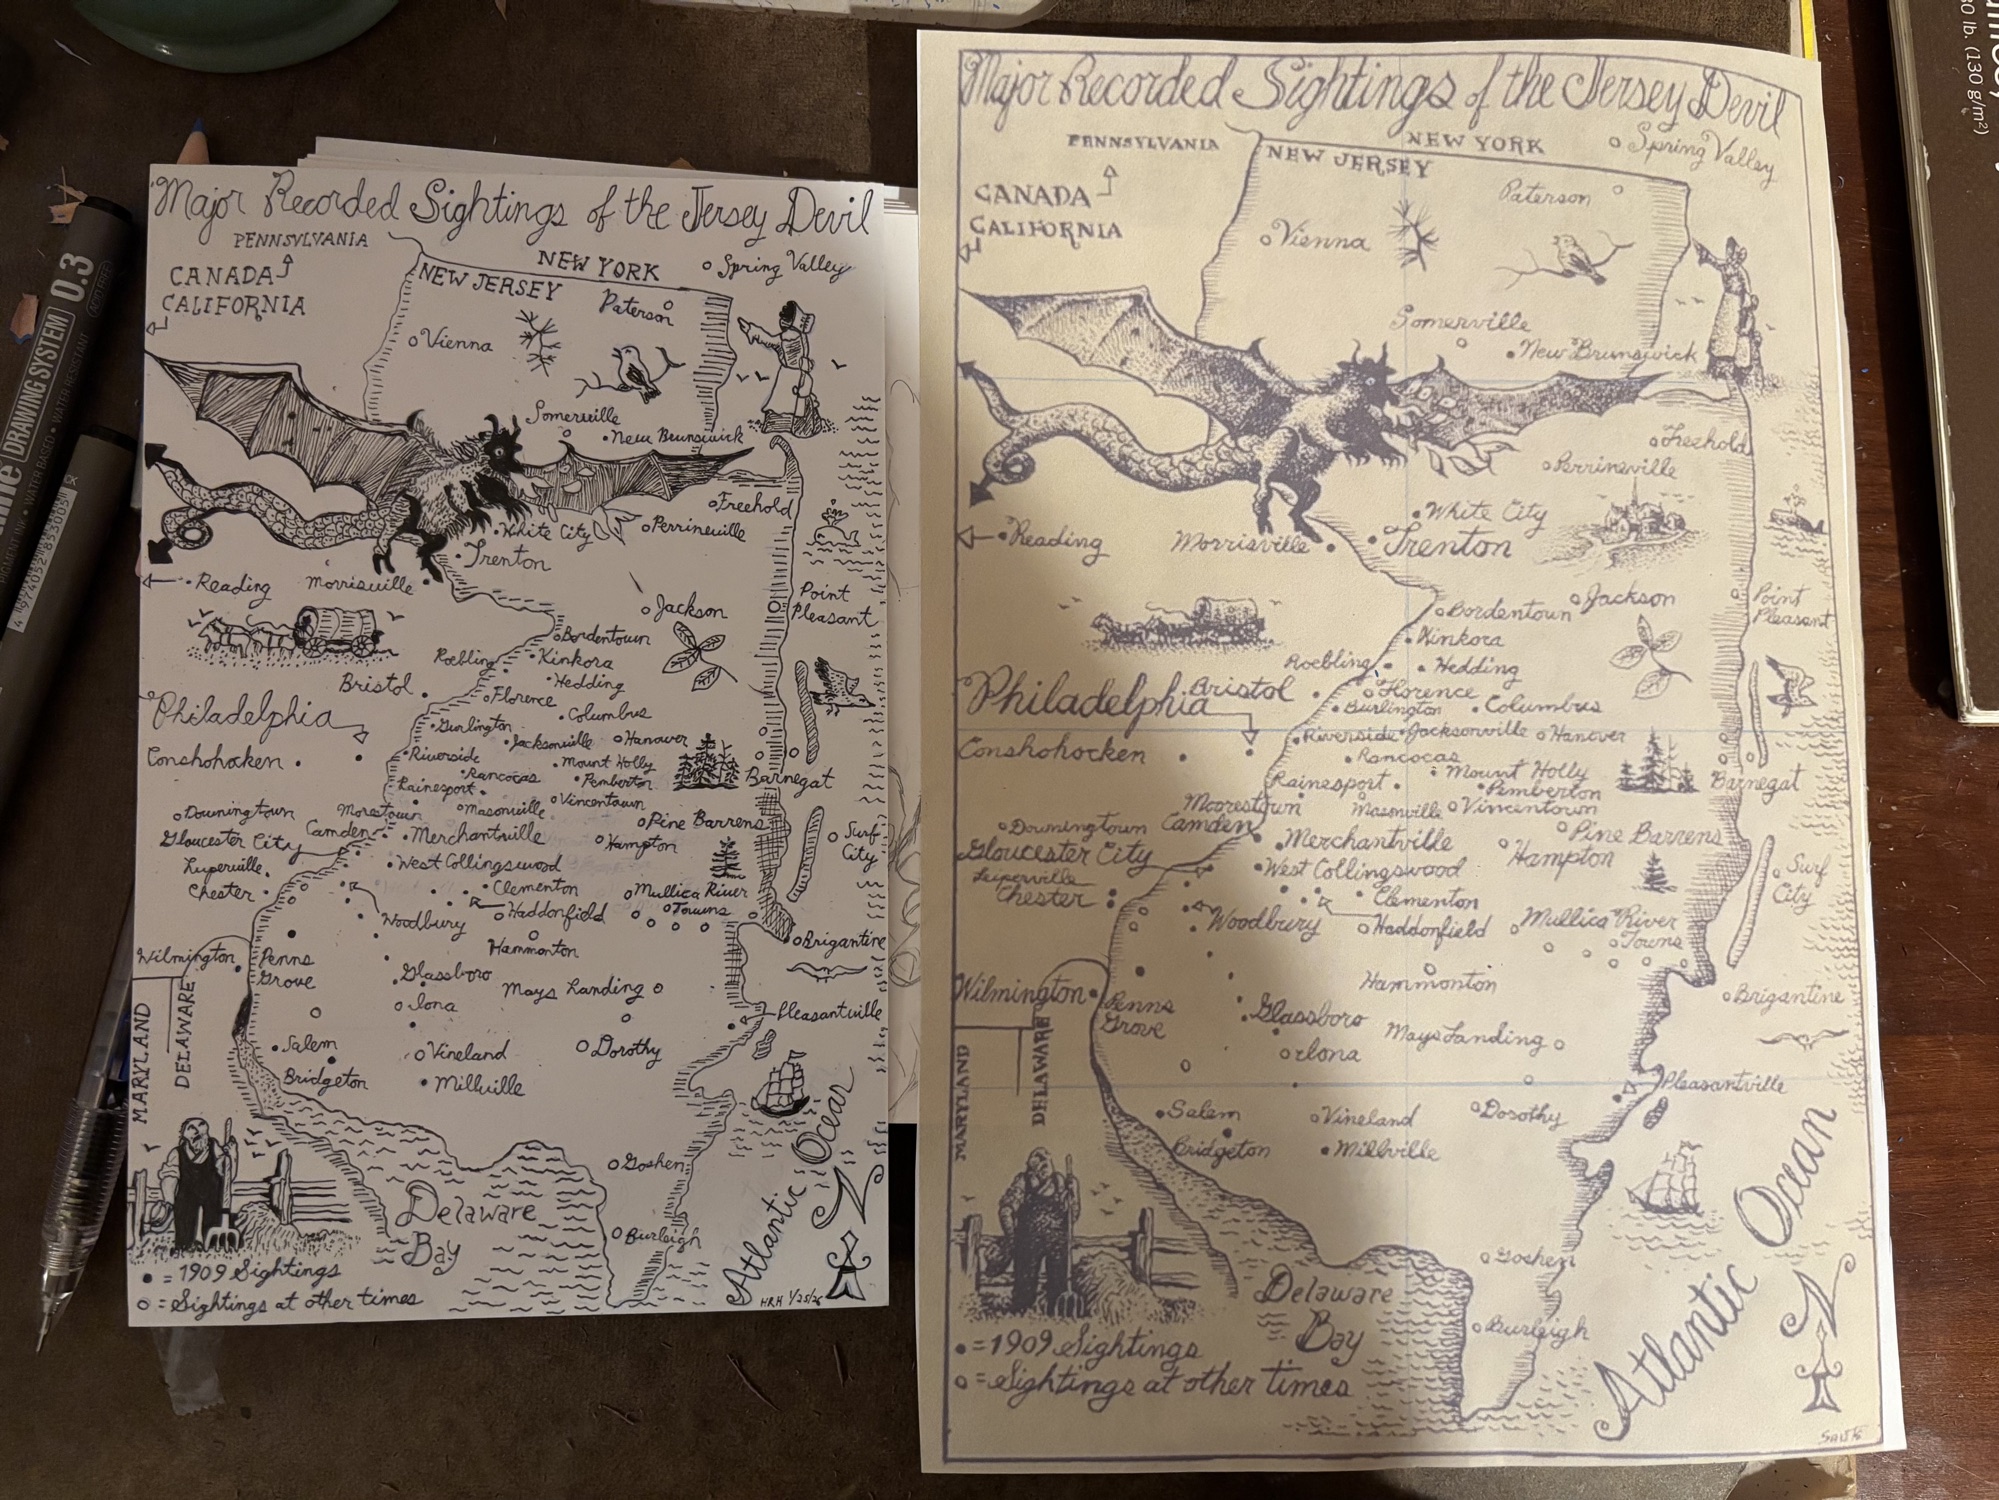 Major Recorded Sightings of the Jersey Devil
PENNSYLVANIA
NEW YORK
Spring Valley
CANADA
NEW JERSEY
CALIFORNIA
Paterson
Vienna
Somerville
New Brunswick
Freehold
White City
Perrineville
Trenton
Reading
Morrisville
Point
Pleasant
Jackson
Bordentown
Roebling
Kinkora
Hedding
Bristol
Florence
Philadelphia
Columbus
Burlington
Jacksonville
Hanover
Riverside
Mount Holly
Conshohocken
Rancocas
Pemberton
Barnegat
Rainesport
Masonville
Vincentown
Downingtown
Morestown
Pine Barrens
Camden
Merchantville
Surf
City
Gloucester City
Hampton
West Collingswood
Leiperville
Clementon
Chester
Mullica River
Towns
Haddonfield
Woodbury
Brigantine
Hammonton
Wilmington
Penns
Grove
Glassboro
Mays Landing
Iona
Pleasantville
MARYLAND
DELAWARE
Salem
Vineland
Dorothy
Bridgeton
Millville
Goshen
Delaware
Bay
Burleigh
Atlantic Ocean
N
• = 1909 Sightings
o = Sightings at other times
HRH 1/25/26
Major Recorded Sightings of the Jersey Devil
PENNSYLVANIA
NEW YORK
Spring Valley
NEW JERSEY
CANADA
Paterson
CALIFORNIA
Vienna
Somerville
New Brunswick
Freehold
Perrineville
White City
Trenton
Reading
Morrisville
Point
Pleasant
Jackson
Bordentown
Kinkora
Roebling
Hedding
Philadelphia
Bristol
Florence
Burlington
Columbus
Riverside
Jacksonville
Hanover
Conshohocken
Rancocas
Mount Holly
Barnegat
Rainesport
Pemberton
Moorestown
Masonville
Vincentown
Downingtown
Camden
Pine Barrens
Merchantville
Hampton
Gloucester City
Surf
City
West Collingswood
Leiperville
Chester
Clementon
Woodbury
Haddonfield
Mullica River
Towns
Hammonton
Brigantine
Wilmington
Penns
Grove
Glassboro
Mays Landing
Iona
Pleasantville
MARYLAND
DELAWARE
Salem
Vineland
Dorothy
Bridgeton
Millville
Goshen
Delaware
Bay
Burleigh
Atlantic Ocean
N
• = 1909 Sightings
o = Sightings at other times
DRAWING SYSTEM 0.3
PIGMENT INK • WATER BASED • WATER RESISTANT
80 lb. (130 g/m²)